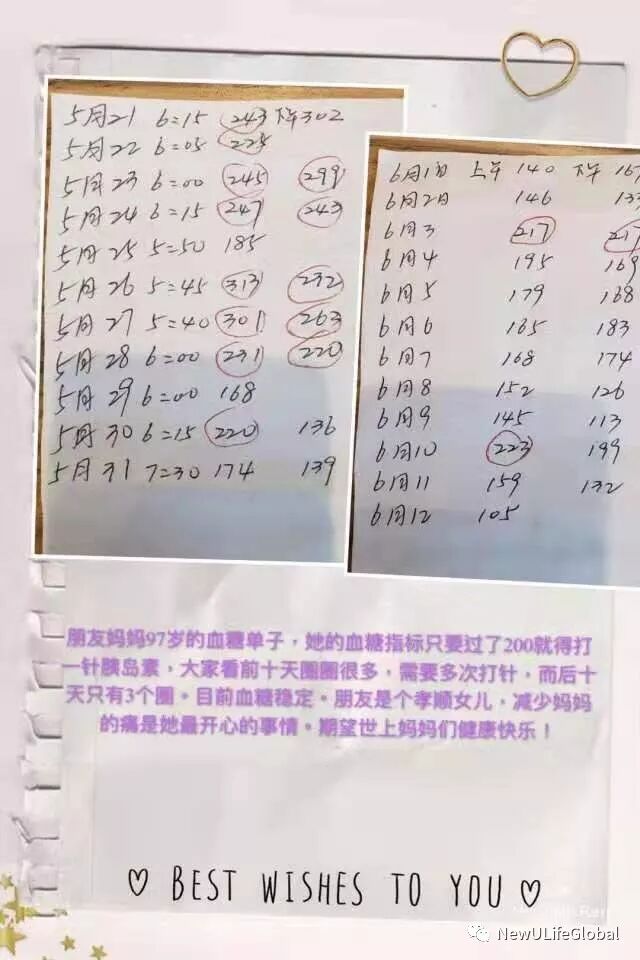 5月21 6=15 243 下午302
5月22 6=05 225
5月23 6=00 245 299
5月24 6=15 247 243
5月25 5=50 185
5月26 5=45 313 232
5月27 5=40 301 263
5月28 6=00 231 220
5月29 6=00 168
5月30 6=15 220 136
5月31 7=30 174 139
6月1日 上午 140 下午 167
6月2日 146 133
6月3 217 217
6月4 195 169
6月5 179 168
6月6 165 183
6月7 168 174
6月8 152 126
6月9 145 113
6月10 223 199
6月11 159 132
6月12 105
朋友妈妈97岁的血糖单子，她的血糖指标只要过了200就得打
一针胰岛素，大家看前十天圈圈很多，需要多次打针，而后十
天只有3个圈。目前血糖稳定。朋友是个孝顺女儿，减少妈妈
的痛是她最开心的事情。期望世上妈妈们健康快乐！
♡ BEST WISHES TO YOU ♡
NewULifeGlobal